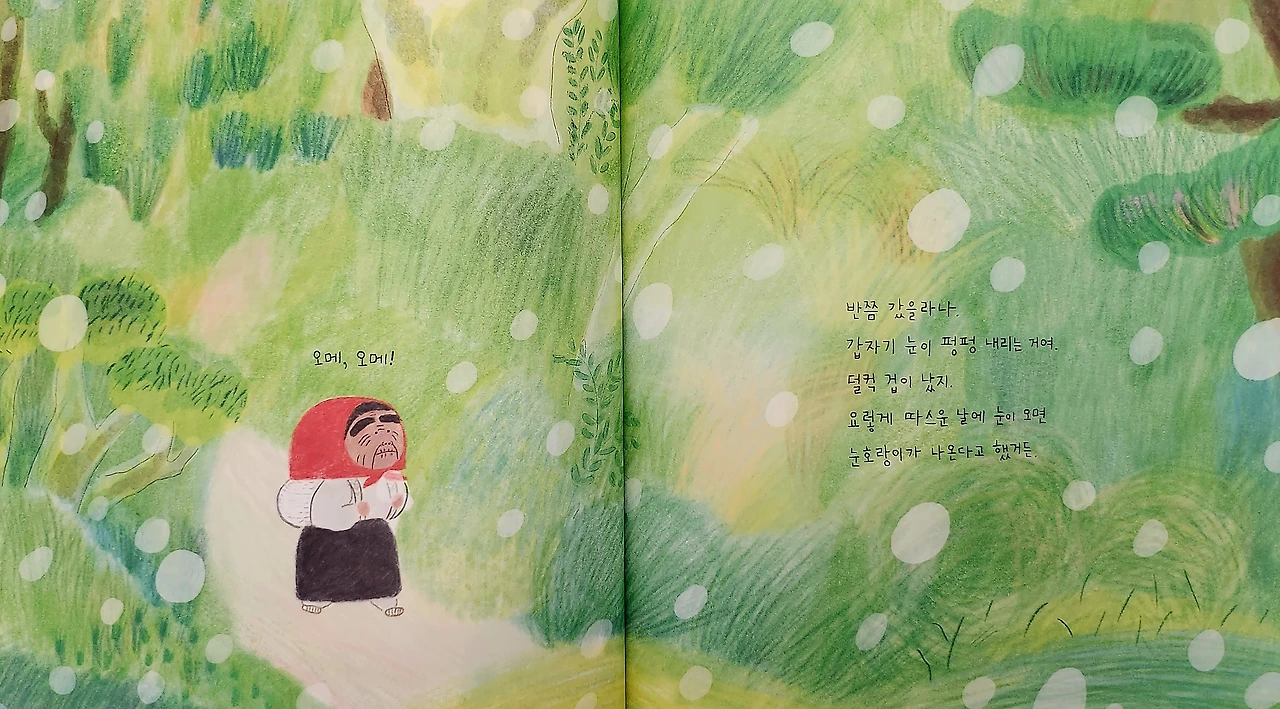 오메, 오메!
반쯤 갔을라나.
갑자기 눈이 펑펑 내리는 거여.
덜컥 겁이 났지.
요렇게 따스운 날에 눈이 오면
눈호랑이가 나온다고 했거든.